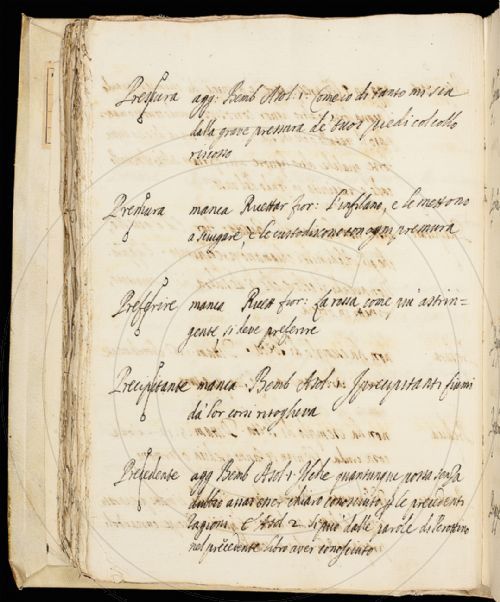 Pressura agg: Bemb Asol: 1. Come io di tanto mi sia
dalla grave pressura de suoi piedi col collo
riscosso
Premura manca Ricettar fior: L'infilano, e le mettono
a sciugare, e le custodiscono con ogni premura
Preferire manca Ricett fior: La rossa come più astrin=
gente, si deve preferire
Precipitante manca. Bemb Asol: 1. I precipitanti fiumi
da' lor corsi ritoglieva
Precedente agg Bemb Asol 1. Il che quantunque possa senza
dubbio assai esser chiaro conosciuto p le precedenti
ragioni. E Asol 2. Si può dalle parole di Perottino
nel precedente libro aver conosciuto